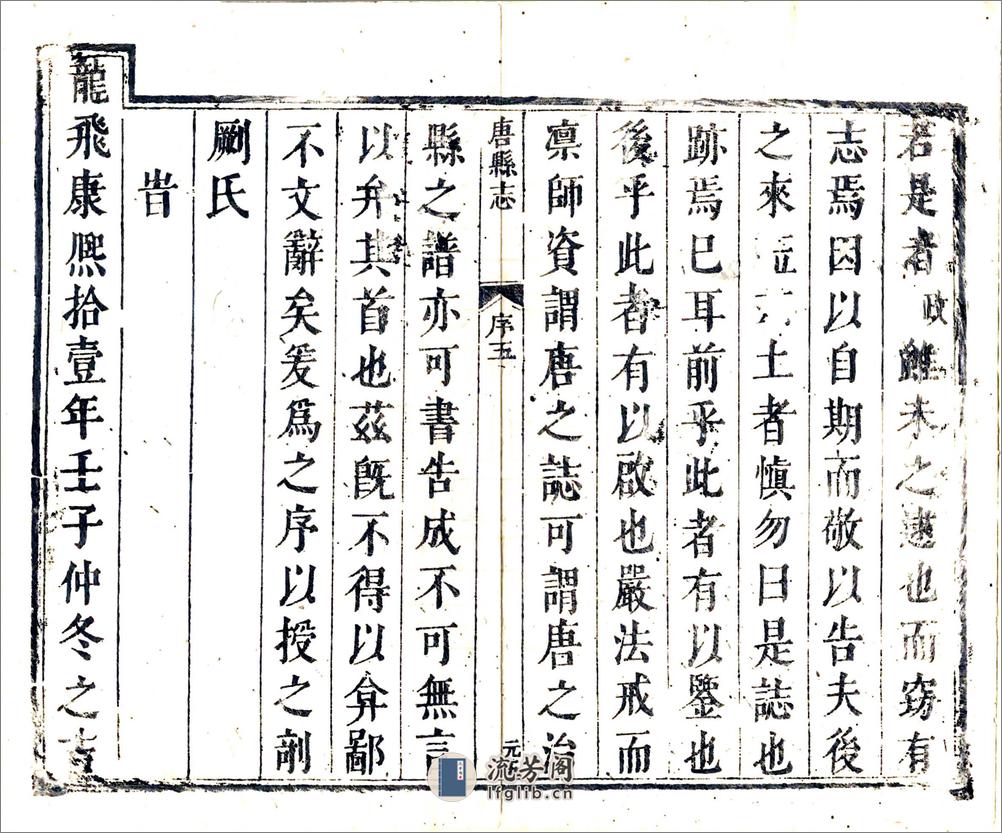 若是者政雖未之逮也而竊有
志焉因以自期而敬以告夫後
之來 土者慎勿曰是誌也
跡焉巳耳前乎此者有以鑒也
後乎此者有以啟也嚴法戒而
凛師資謂唐之誌可謂唐之治
唐縣志
序五
縣之譜亦可書告成不可無言
以弁其首也茲旣不得以弇鄙
不文辭矣爰爲之序以授之剞
劂氏
旹
龍飛康熙拾壹年壬子仲冬之吉
元や
流芳阁
lfglib.cn